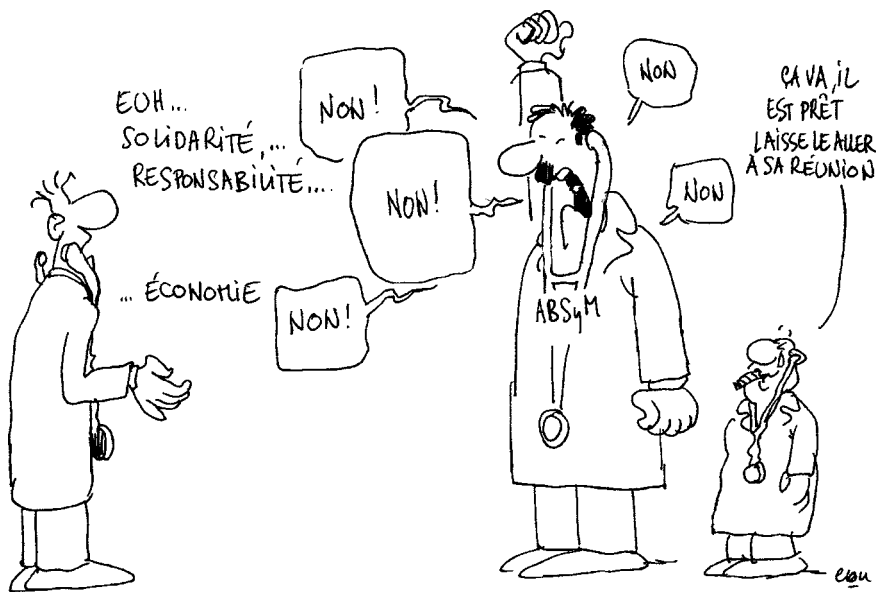 EUH...
SOLIDARITÉ,...
RESPONSABILITÉ...
... ÉCONOMIE
NON!
NON!
NON!
NON
NON
ABSyM
ÇA VA, IL
EST PRÊT
LAISSE LE ALLER
À SA RÉUNION